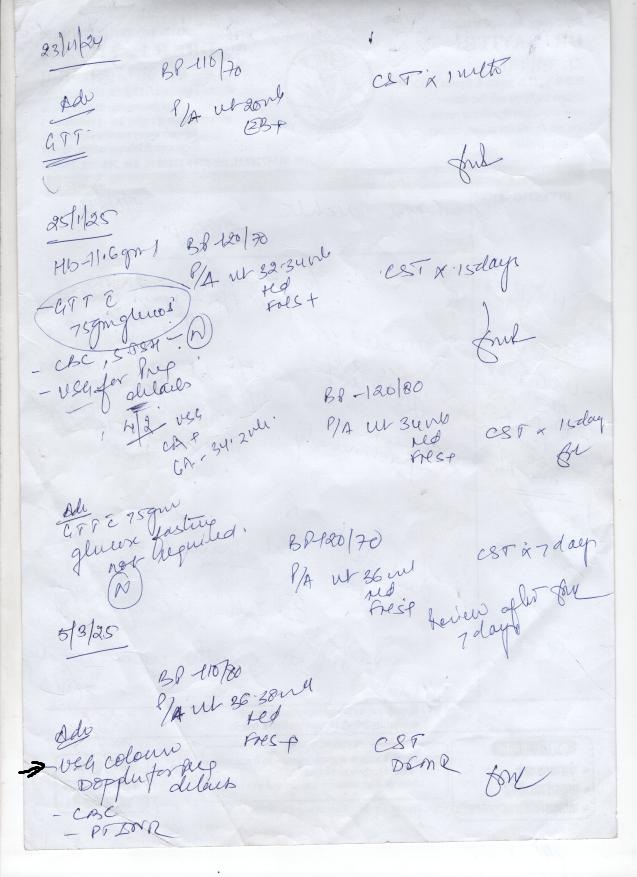 23/11/24
BP-110/70
CST x 1 mth
Adv
P/A ut 20 wk
EB+
GTT
25/1/25
Hb-11.6gm
BP-120/70
P/A ut 32-34 wk
CST x 15days
- GTT c
75gm glucose
FHS+
- CBC, S.TSH - (N)
- USG for Preg
details
BP-120/80
4/2 USG
P/A ut 34 wk
CST x 15day
GA-34.2wk.
FHS+
Adv
GTT c 75gm
glucose fasting
not required.
(N)
BP-120/70
CST x 7 day
P/A ut 36 wk
FHS+
Review after
7 days
5/3/25
BP-110/80
P/A ut 36-38 wk
FHS+
Adv
- USG colour
Doppler for preg
details
CST
- CBC
- PT INR